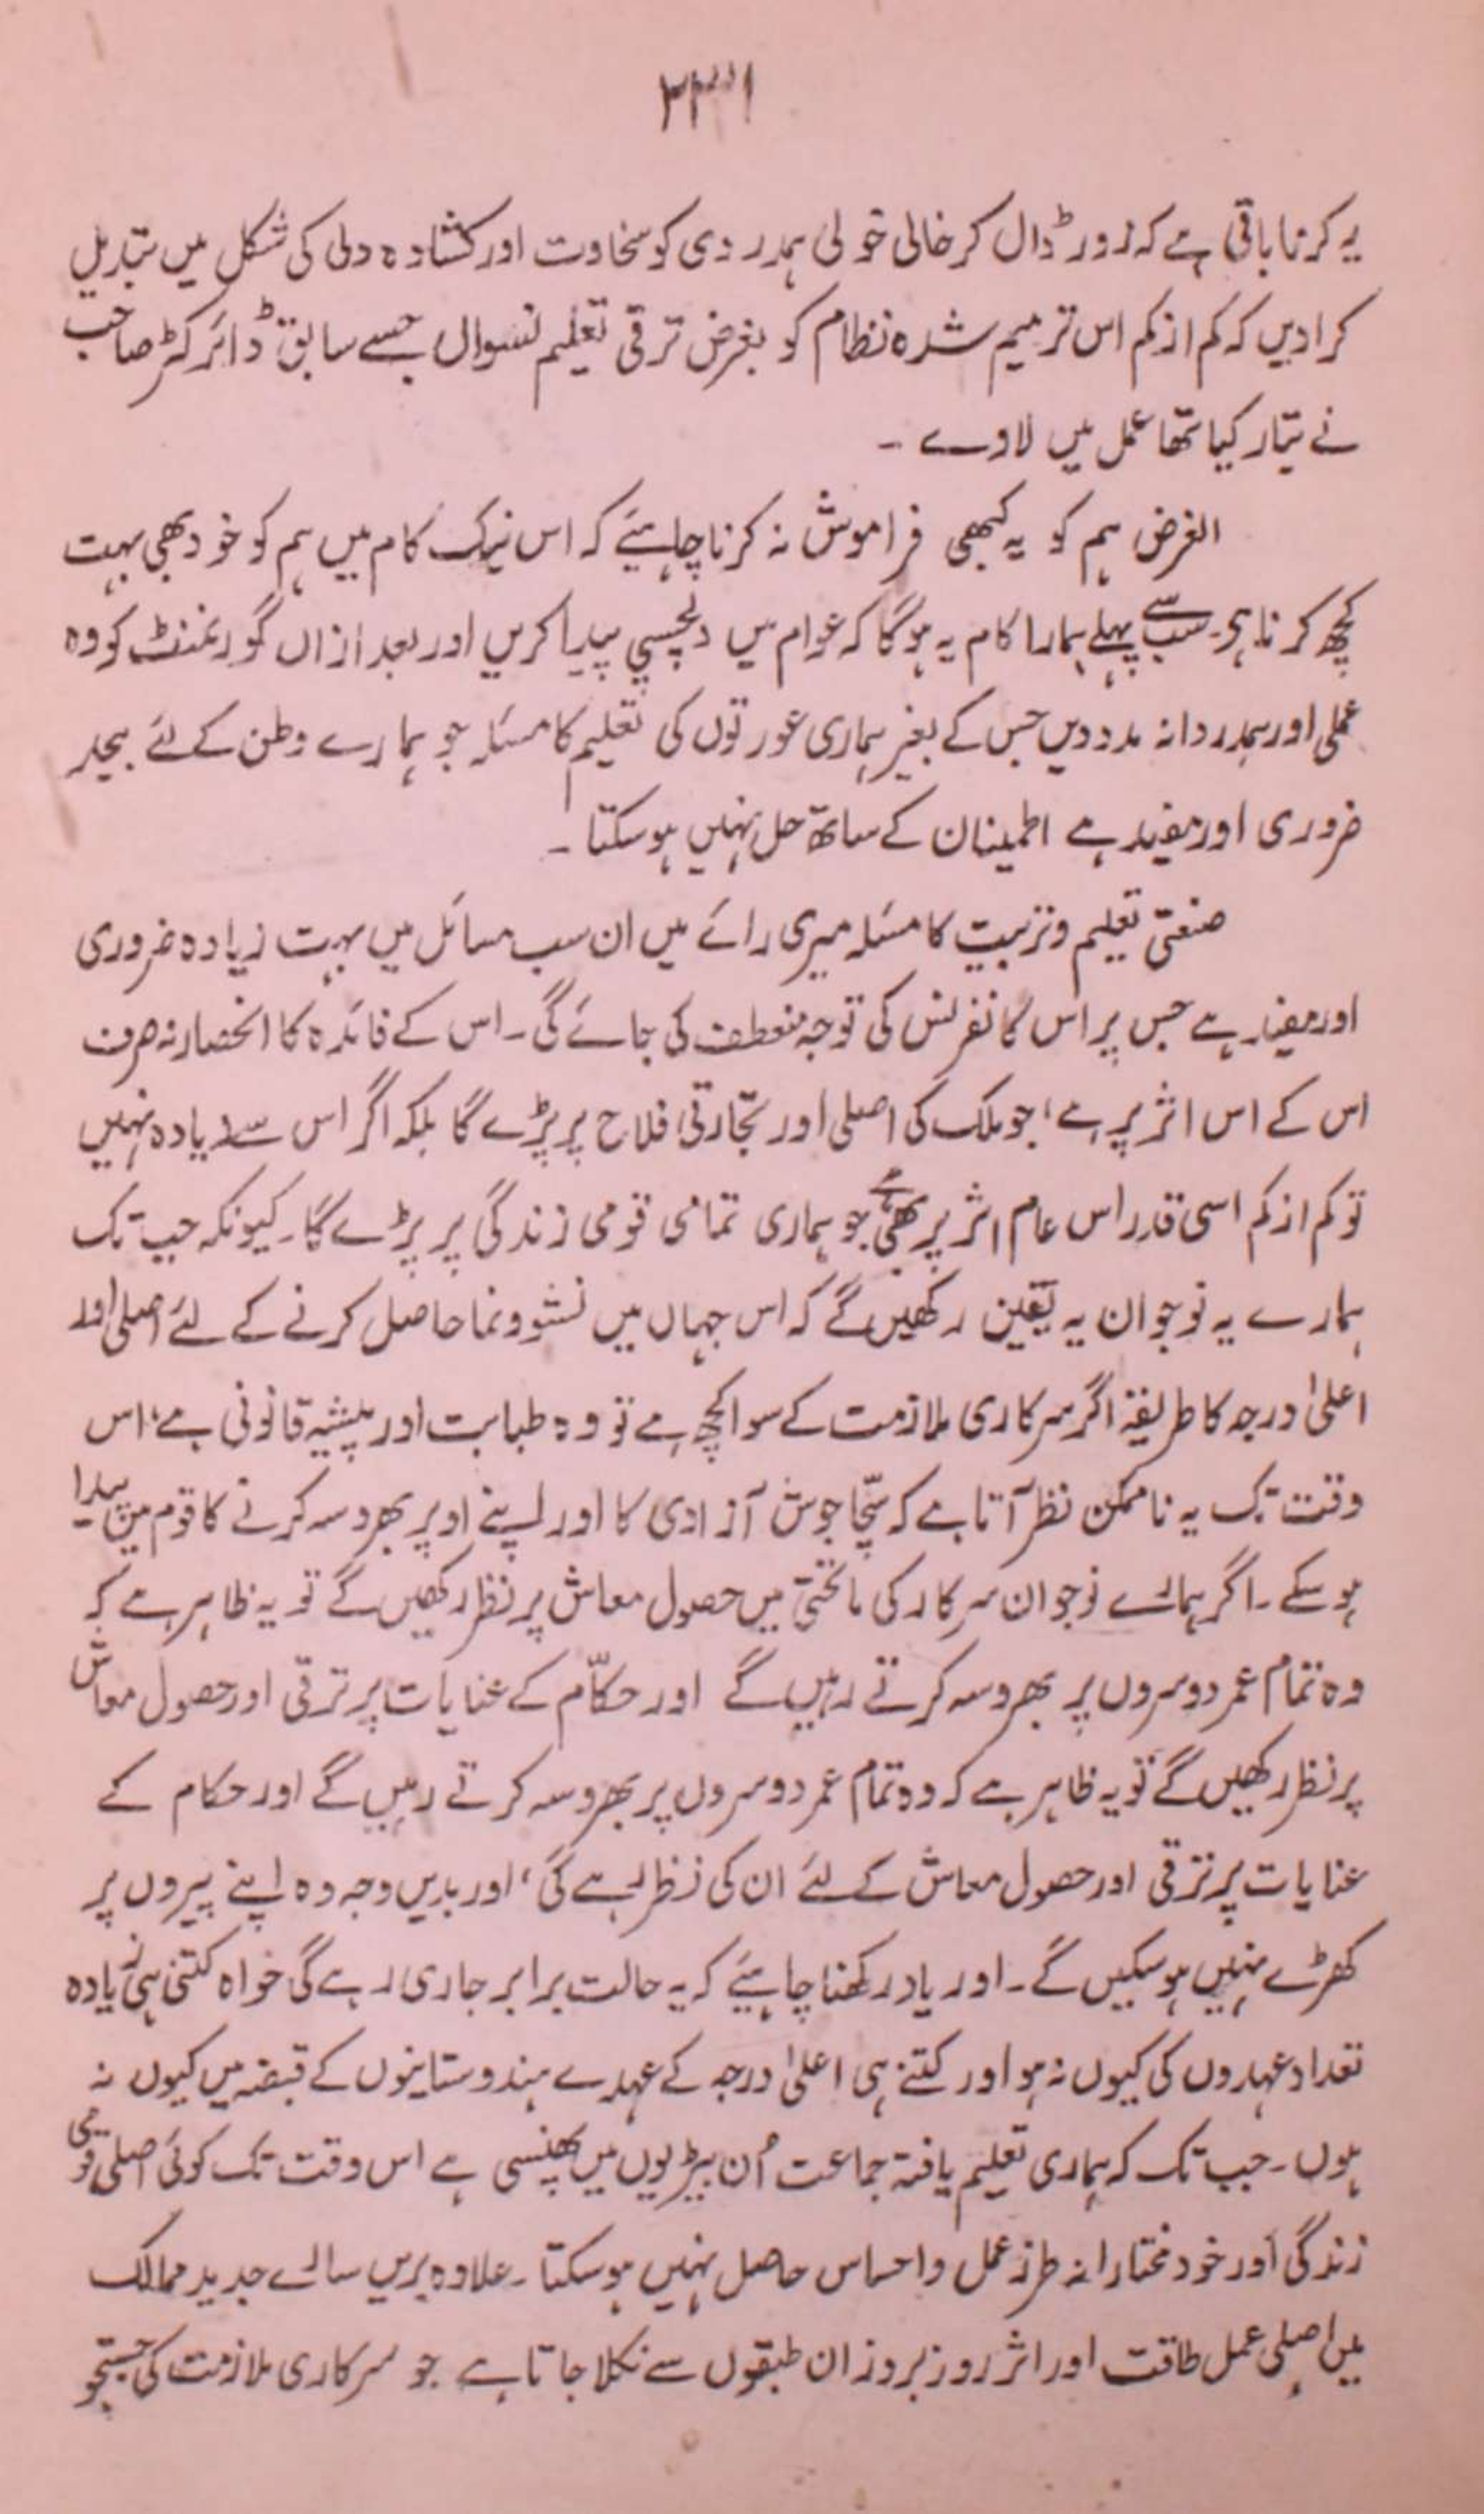 ۳۳۱
یہ کرنا باقی ہے کہ زور ڈال کر خالی خولی ہمدردی کو سخاوت اور کشادہ دلی کی شکل میں تبدیل
کرادیں کہ کم از کم اس ترمیم شدہ نظام کو بغرض ترقی تعلیم نسواں جسے سابق ڈائرکٹر صاحب
نے تیار کیا تھا عمل میں لاوے ۔
الغرض ہم کو یہ کبھی فراموش نہ کرنا چاہیئے کہ اس نیک کام میں ہم کو خود بھی بہت
کچھ کرنا ہی۔ سب سے پہلے ہمارا کام یہ ہوگا کہ عوام میں دلچسپی پیدا کریں اور بعد ازاں گورنمنٹ کو وہ
عملی اور ہمدردانہ مدد دیں جس کے بغیر ہماری عورتوں کی تعلیم کا مسئلہ جو ہمارے وطن کے لئے بیحد
ضروری اور مفید ہے اطمینان کے ساتھ حل نہیں ہوسکتا ۔
صنعتی تعلیم و تربیت کا مسئلہ میری رائے میں ان سب مسائل میں بہت زیادہ ضروری
اور مفید ہے جس پر اس کانفرنس کی توجہ منعطف کی جائے گی۔ اس کے فائدہ کا انحصار نہ صرف
اس کے اس اثر پر ہے، جو ملک کی اصلی اور تجارتی فلاح پر پڑے گا بلکہ اگر اس سے زیادہ نہیں
تو کم از کم اسی قدر اس عام اثر پر بھی ہے جو ہماری تمامی قومی زندگی پر پڑے گا۔ کیونکہ جب تک
ہمارے یہ نوجوان یہ یقین رکھیں گے کہ اس جہاں میں نشوونما حاصل کرنے کے لئے اصلی اور
اعلیٰ درجہ کا طریقہ اگر سرکاری ملازمت کے سوا کچھ ہے تو وہ طبابت اور پیشہ قانونی ہے، اس
وقت تک یہ ناممکن نظر آتا ہے کہ سچّا جوش آزادی کا اور اپنے اوپر بھروسہ کرنے کا قوم میں پیدا
ہو سکے ۔ اگر ہمارے نوجوان سرکار کی ماتحتی میں حصول معاش پر نظر رکھیں گے تو یہ ظاہر ہے کہ
وہ تمام عمر دوسروں پر بھروسہ کرتے رہیں گے اور حکّام کے عنایات پر ترقی اور حصول معاش
پر نظر رکھیں گے تو یہ ظاہر ہے کہ وہ تمام عمر دوسروں پر بھروسہ کرتے رہیں گے اور حکام کے
عنایات پر ترقی اور حصول معاش کے لئے ان کی نظر رہے گی، اور بدیں وجہ وہ اپنے پیروں پر
کھڑے نہیں ہو سکیں گے۔ اور یاد رکھنا چاہیئے کہ یہ حالت برابر جاری رہے گی خواہ کتنی ہی زیادہ
تعداد عہدوں کی کیوں نہ ہو اور کتنے ہی اعلیٰ درجہ کے عہدے ہندوستانیوں کے قبضہ میں کیوں نہ
ہوں۔ جب تک کہ ہماری تعلیم یافتہ جماعت اُن بیڑیوں میں پھنسی ہے اس وقت تک کوئی اصلی قومی
زندگی اور خود مختارانہ طرز عمل و احساس حاصل نہیں ہو سکتا ۔ علاوہ بریں سارے جدید ممالک
میں اصلی عمل طاقت اور اثر روز بروز ان طبقوں سے نکلا جاتا ہے جو سرکاری ملازمت کی جستجو